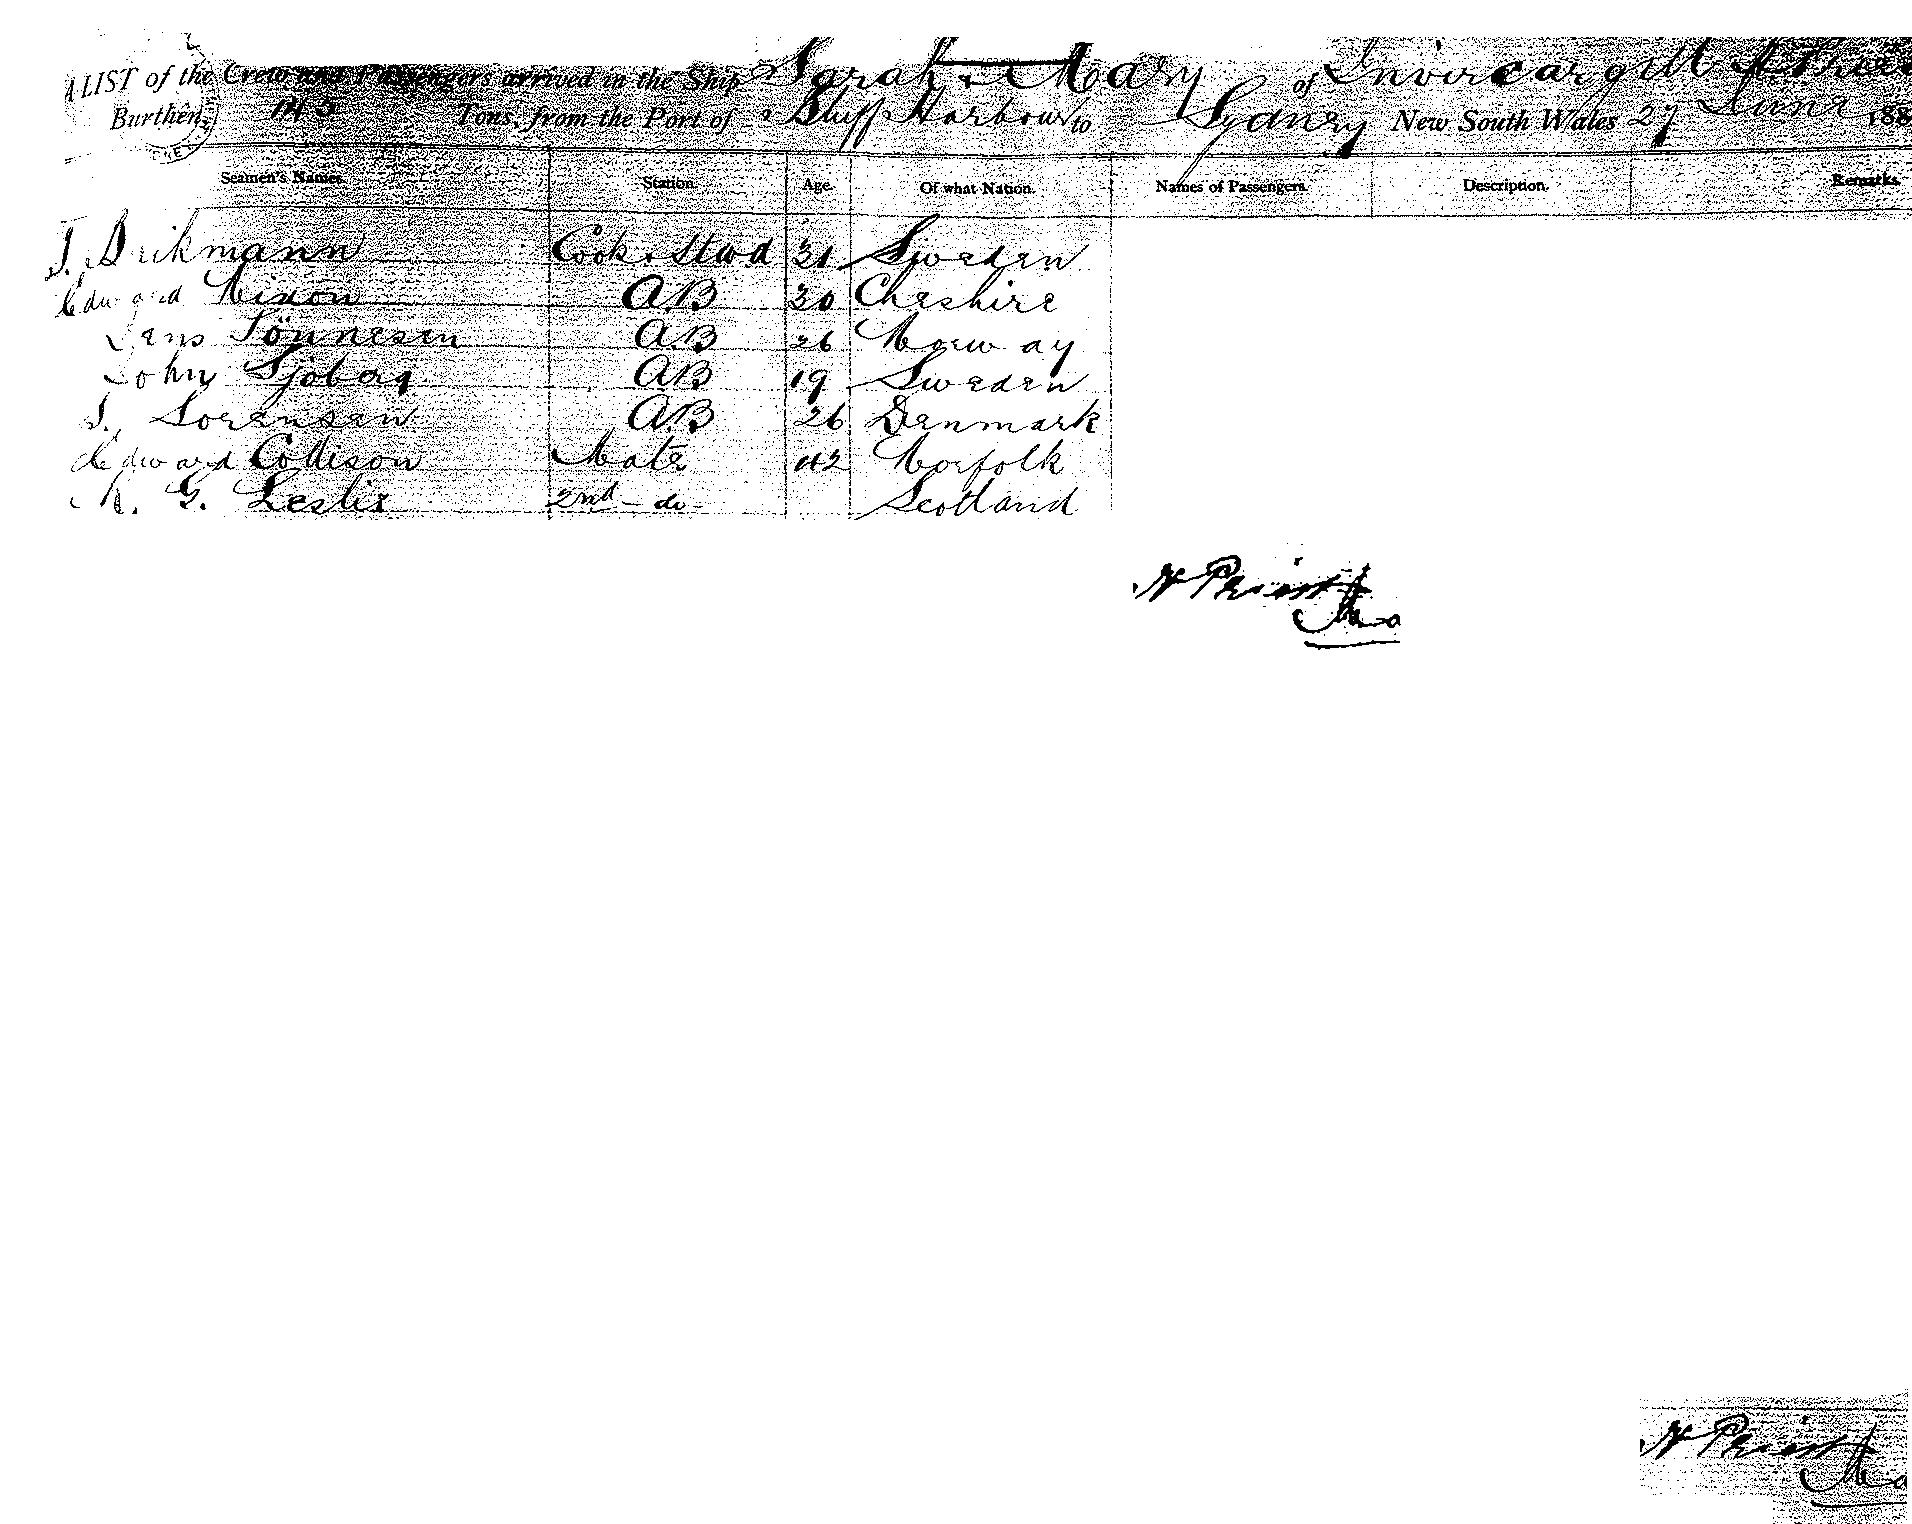 A LIST of the Crew and Passengers arrived in the Ship Sarah & Mary of Invercargill
Burthen 143 Tons, from the Port of Bluff Harbour to Sydney New South Wales 27 June 188
Seamen's Names. Station. Age. Of what Nation. Names of Passengers. Description. Remarks.
J. Brikmann Cook & Stwd 31 Sweden
Edward Nixon A.B 30 Cheshire
Jens Tönnesen A.B 26 Norway
John Sjoberg A.B 19 Sweden
J. Sorensen A.B 26 Denmark
Edward Collison Mate 42 Norfolk
G. Leslie 2nd do Scotland
Priest
Priest